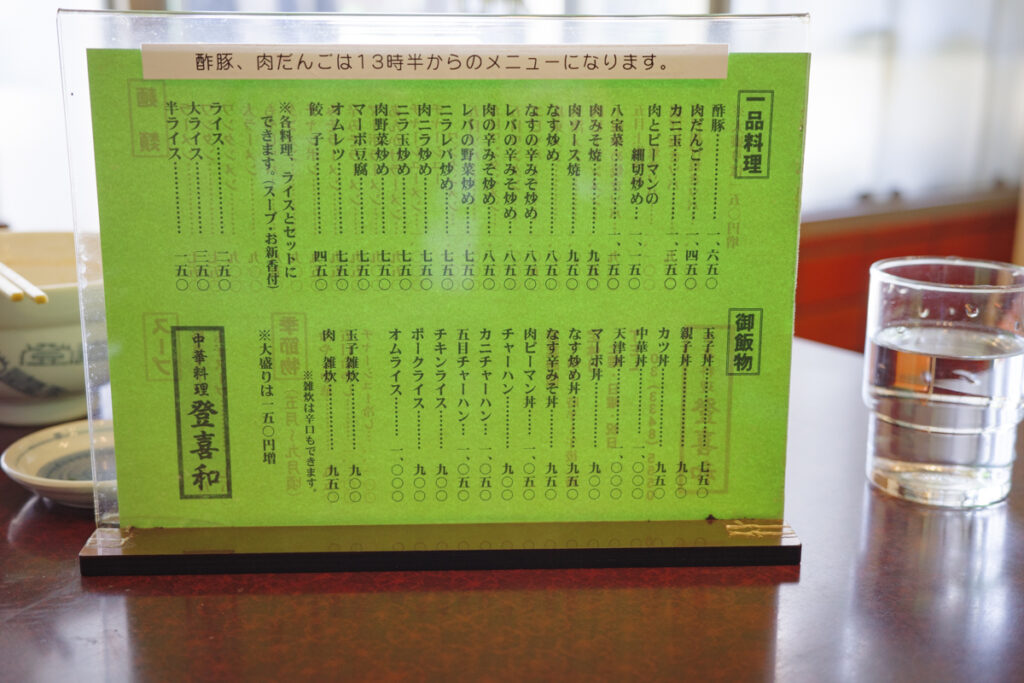 酢豚、肉だんごは13時半からのメニューになります。
一品料理
酢豚……一、六五〇
肉だんご……一、四五〇
カニ玉……一、三五〇
肉とピーマンの
細切炒め……一、一五〇
八宝菜……一、一五〇
肉みそ焼……九五〇
肉ソース焼……九五〇
なす炒め……八五〇
なすの辛みそ炒め……八五〇
レバの辛みそ炒め……八五〇
肉の辛みそ炒め……八五〇
レバの野菜炒め……七五〇
ニラレバ炒め……七五〇
肉ニラ炒め……七五〇
ニラ玉炒め……七五〇
肉野菜炒め……七五〇
マーボ豆腐……七五〇
オムレツ……七五〇
餃子……四五〇
※各料理、ライスとセットに
できます。(スープ・お新香付)
ライス……二五〇
大ライス……三五〇
半ライス……一五〇
御飯物
玉子丼……七五〇
親子丼……九〇〇
カツ丼……九五〇
中華丼……一、〇〇〇
天津丼……一、〇〇〇
マーボ丼……九〇〇
なす炒め丼……九五〇
なす辛みそ丼……九五〇
肉ピーマン丼……一、〇五〇
チャーハン……九〇〇
カニチャーハン……一、〇〇〇
五目チャーハン……一、〇五〇
チキンライス……九〇〇
ポークライス……九〇〇
オムライス……一、〇〇〇
※雑炊は辛口もできます。
玉子雑炊……九〇〇
肉雑炊……九五〇
※大盛りは一五〇円増
中華料理 登喜和